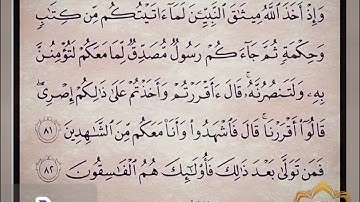 وَإِذْ أَخَذَ اللَّهُ مِيثَاقَ النَّبِيِّينَ لَمَا ءَاتَيْتُكُم مِّن كِتَابٍ
وَحِكْمَةٍ ثُمَّ جَاءَكُمْ رَسُولٌ مُّصَدِّقٌ لِّمَا مَعَكُمْ لَتُؤْمِنُنَّ
بِهِ وَلَتَنصُرُنَّهُ قَالَ ءَأَقْرَرْتُمْ وَأَخَذْتُمْ عَلَىٰ ذَٰلِكُمْ إِصْرِي
قَالُوا أَقْرَرْنَا قَالَ فَاشْهَدُوا وَأَنَا مَعَكُم مِّنَ الشَّاهِدِينَ ٨١
فَمَن تَوَلَّىٰ بَعْدَ ذَٰلِكَ فَأُولَٰئِكَ هُمُ الْفَاسِقُونَ ٨٢